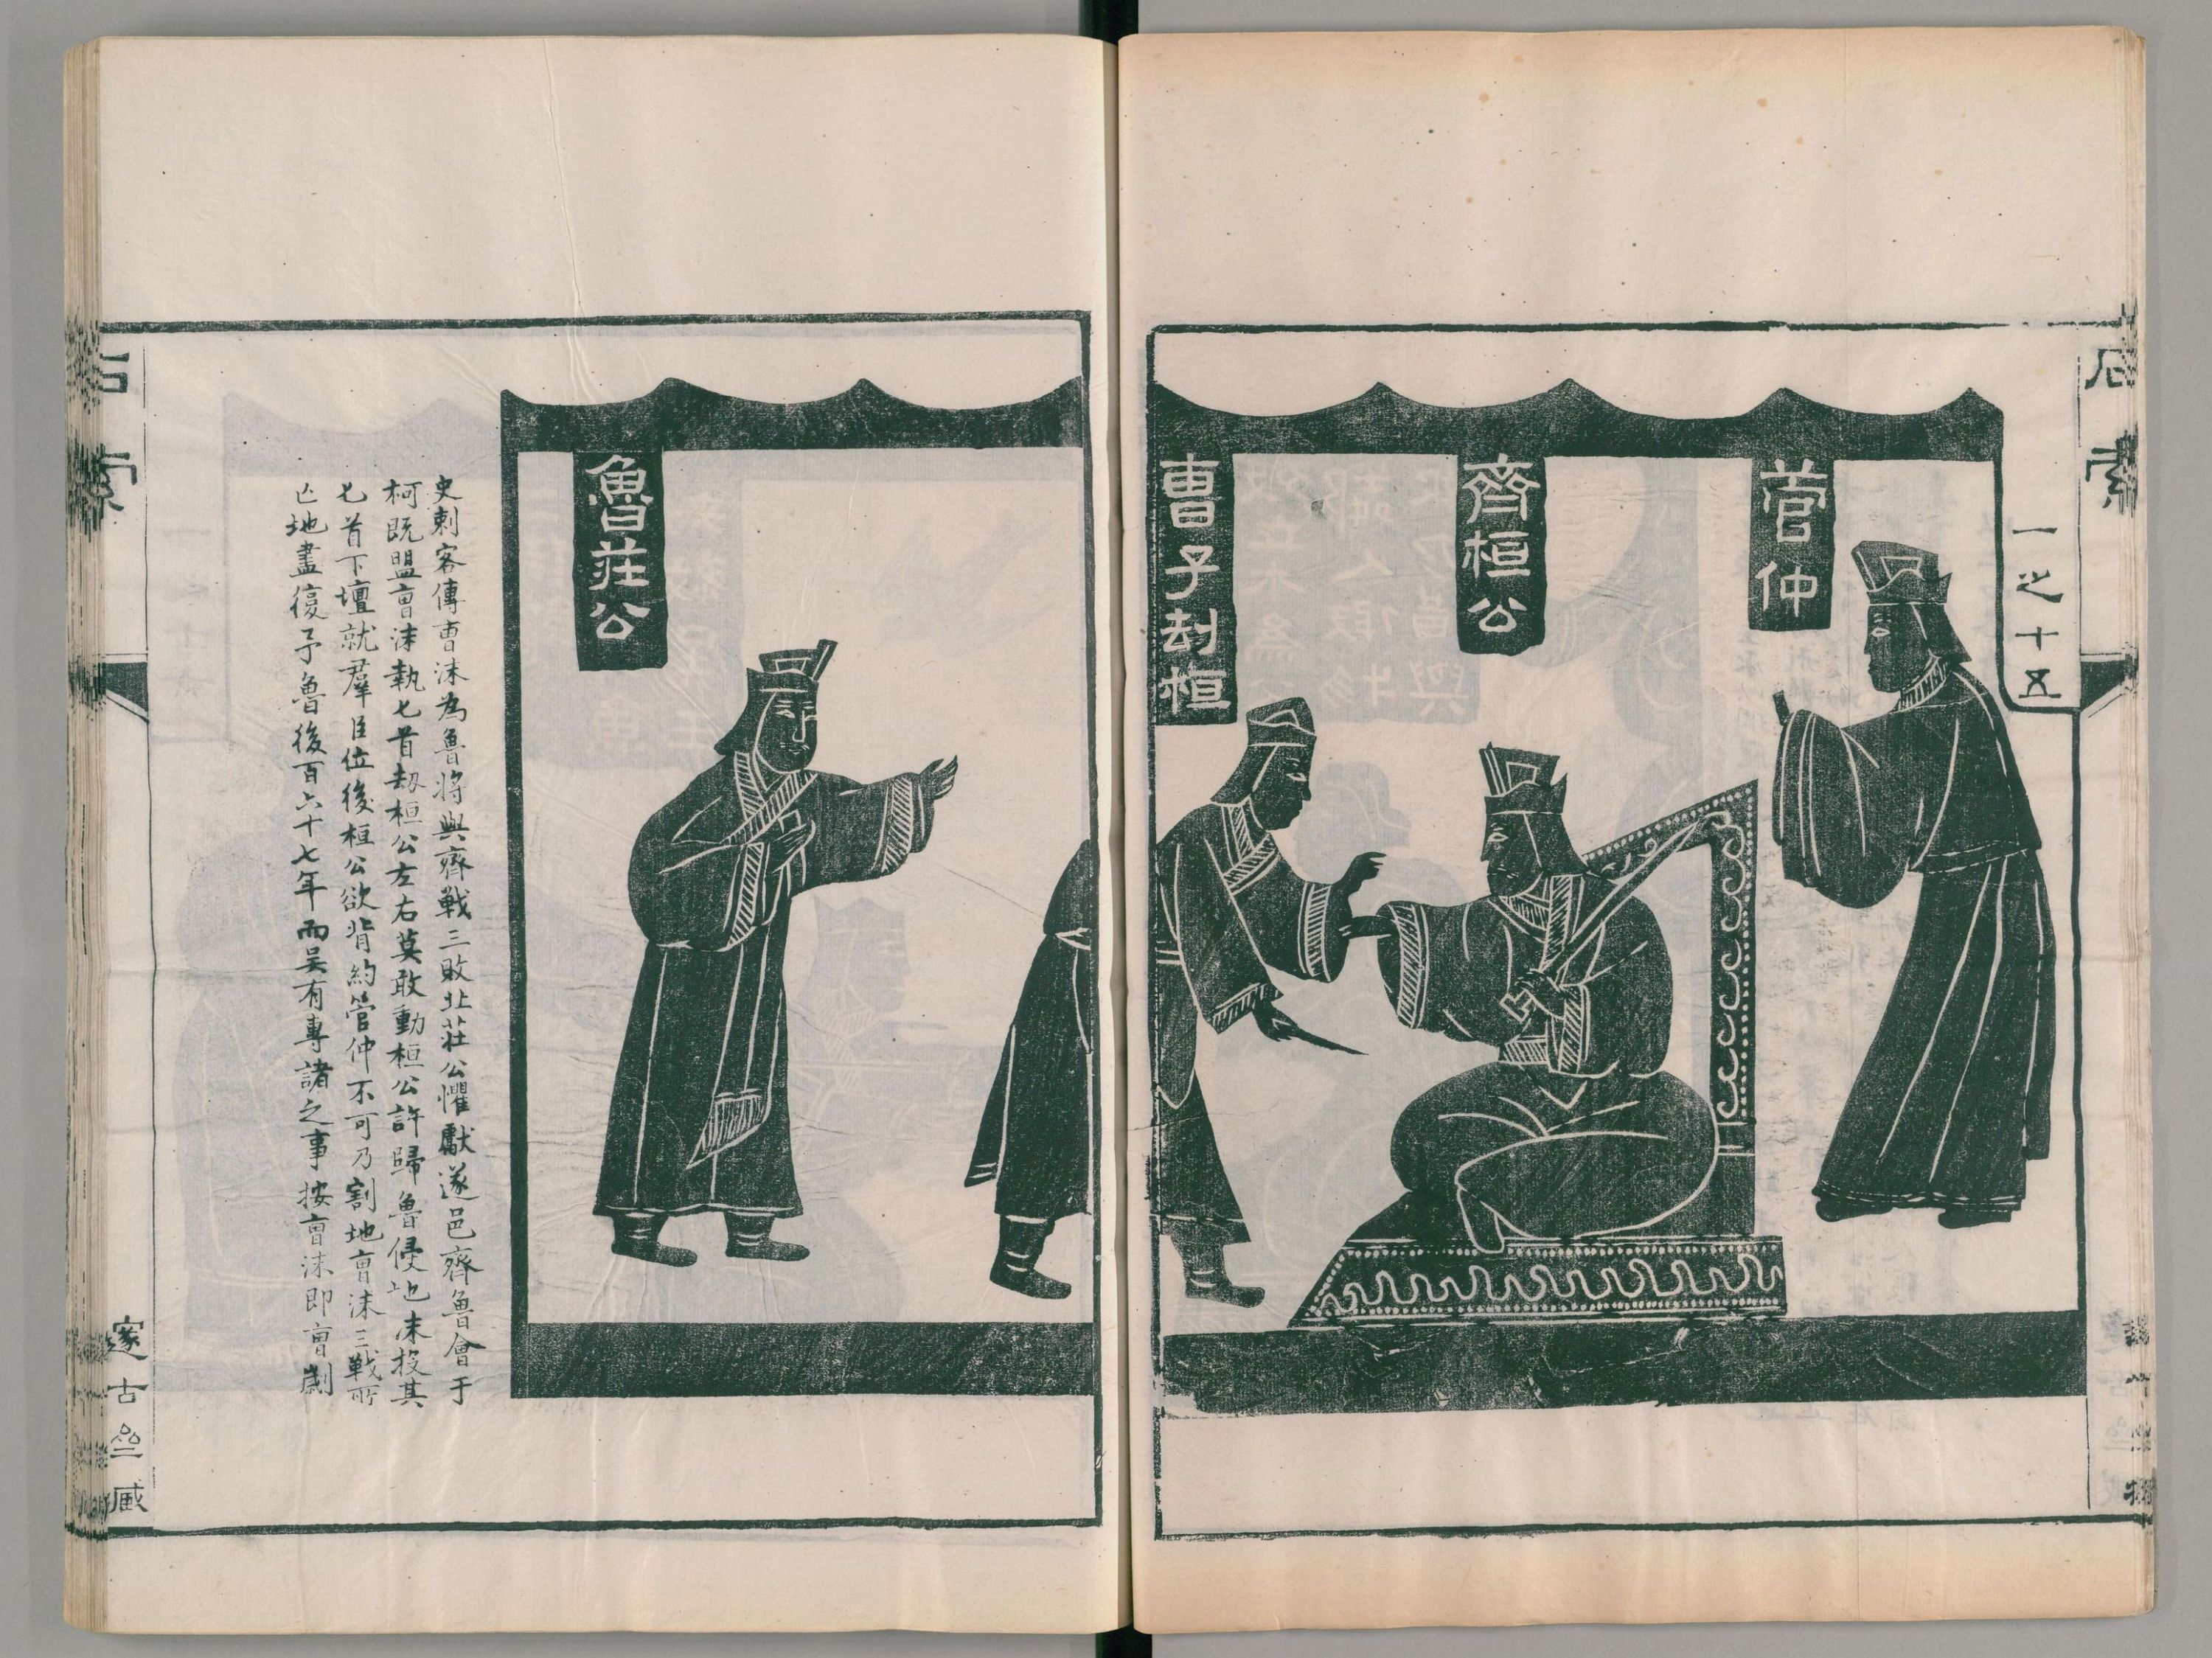 石索
一之十五
管仲
齊桓公
曹子劫桓
魯莊公
史刺客傳曹沫為魯將與齊戰三敗北莊公懼獻遂邑齊魯會于
柯既盟曹沫執匕首劫桓公左右莫敢動桓公許歸魯侵地沫投其
匕首下壇就羣臣位後桓公欲背約管仲不可乃割地曹沫三戰所
亾地盡復予魯後百六十七年而吳有專諸之事按曹沫即曹劌
石索
邃古齋藏